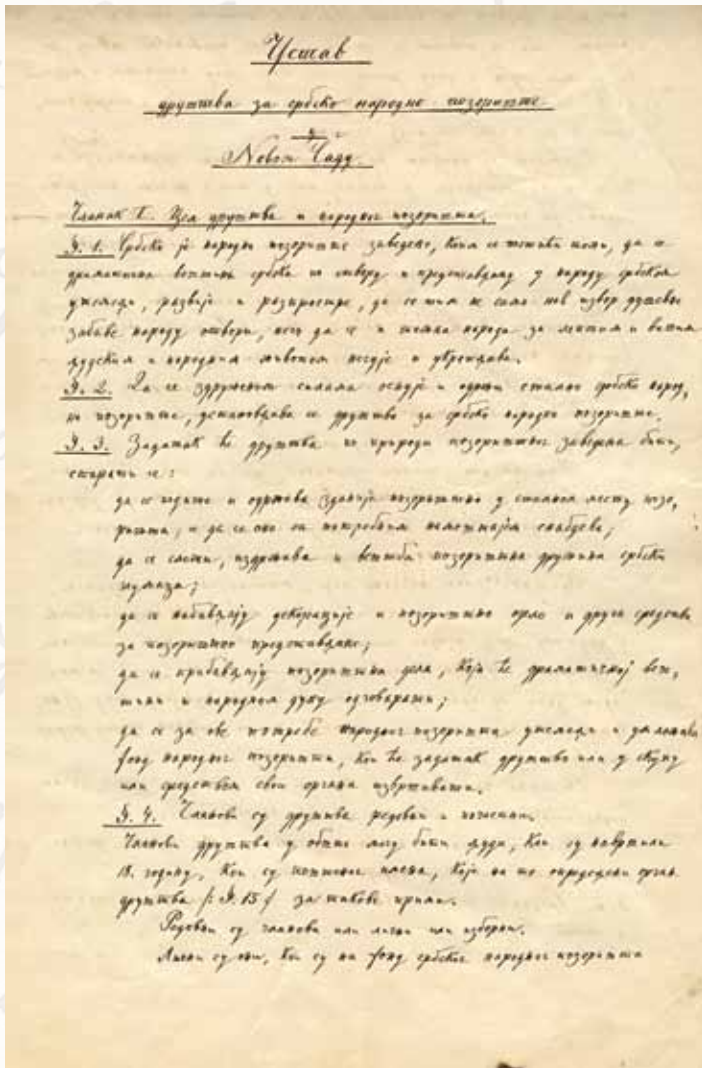 Устав
друштва за србско народно позориште
у
Новом Саду.
Чланак I. Цел друштва и народног позоришта.
§. 1. Србско је народно позориште заведено, коим се тежити има, да се
драматична вештина србска по створу и представляњу у народу србском
укемели, развије и розпростре, да се тим не само нов извор душевне
забаве народу отвори, већ да се и тежња народа за лепшим и вишим
људским и народним животом негује и укрепљава.
§. 2. Да се здруженим силама оснује и одржи стално србско народ,
но позориште, установљава се друштво за србско народно позориште.
§. 3. Задатак ће друштва по природи позоришног заведења бити,
старати се:
да се подигне и одржава зданије позоришно у сталном месту позо,
ришта, и да се оно са потребним намештајем снабдева;
да се састави, издржава и вештба позоришна дружина србски
глумаца;
да се набављају декорације и позоришно орло и друга средства
за позоришно представљање;
да се прибављају позоришна дела, која ће драматичној веш,
тини и народном духу одговарати;
да се за ове потребе народног позоришта укемели и умложава
фонд народног позоришта, кои ће задатак друштво или у скупу
или средством свои органа извршивати.
§. 4. Чланови су друштва редовни и почасни.
Чланови друштва у обште могу бити људи, кои су навршили
18. годину, кои су поштеног имена, које на то определени орган
друштва /: §. 15 :/ за такове прими.
Редовни су чланови или лични или изборни.
Лични су они, кои су на фонд србског народног позоришта